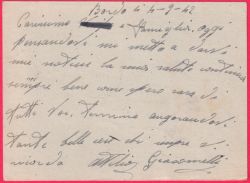 Bordo li 4-9-42
Carissimo e Famiglia, oggi
pensandovi mi metto a darvi
mie notizie la mia salute continua
sempre bene come spero cosi di
tutti voi, termino augurandovi
tante belle cose chi sempre vi
ricorda Attilio